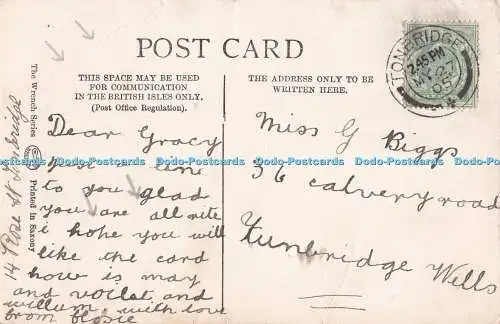 POST CARD
THIS SPACE MAY BE USED
FOR COMMUNICATION
IN THE BRITISH ISLES ONLY.
(Post Office Regulation).
THE ADDRESS ONLY TO BE
WRITTEN HERE.
TONBRIDGE
2.45 PM
The Wrench Series
Printed in Saxony
Dear Gracy
Just a line
to you glad
you are all rite
i hope you will
like the card
how is may
and voilet and
willum with love
from flosie
14 Rose St Tonbridge
Miss G Biggs
36 calvery road
Tunbridge Wells
Dodo-Postcards Dodo-Postcards Dodo-Postcards Dodo-Postcards Dodo-Postcards Dodo-Postcards